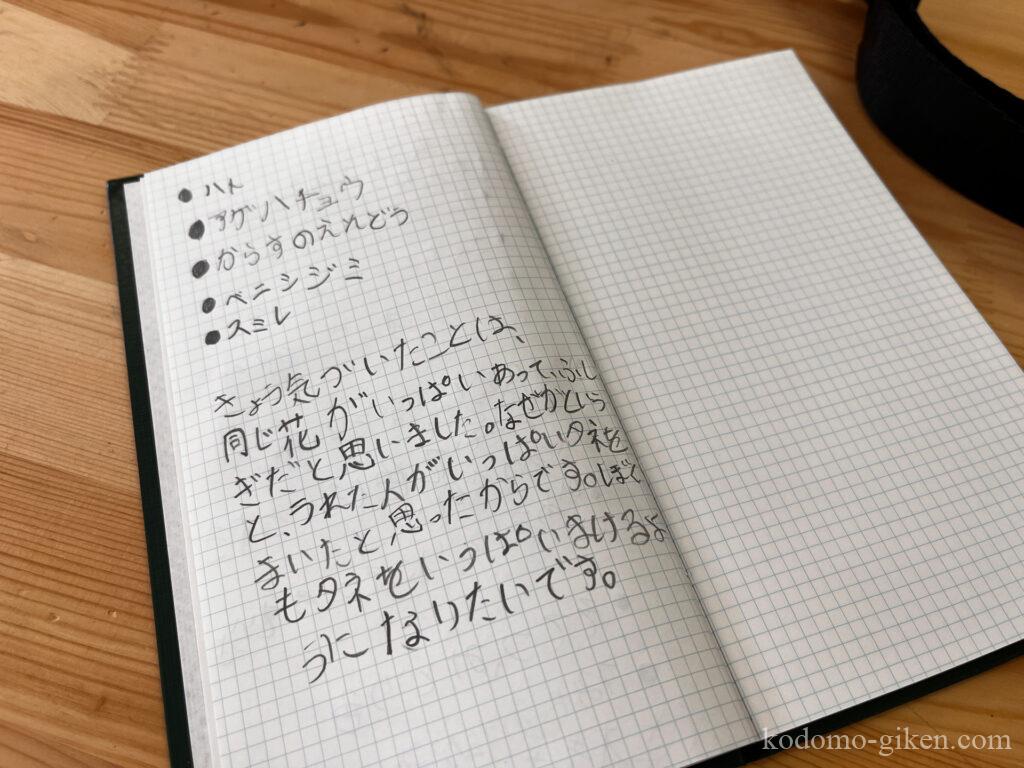 ● ハト
● アゲハチョウ
● からすのえんどう
● ベニシジミ
● スミレ
きょう気づいたことは、
同じ花がいっぱいあって、ふし
ぎだと思いました。なぜかという
と、うれた人がいっぱいタネを
まいたと思ったからです。ぼく
もタネをいっぱいまけるよ
うになりたいです。
kodomo-giken.com